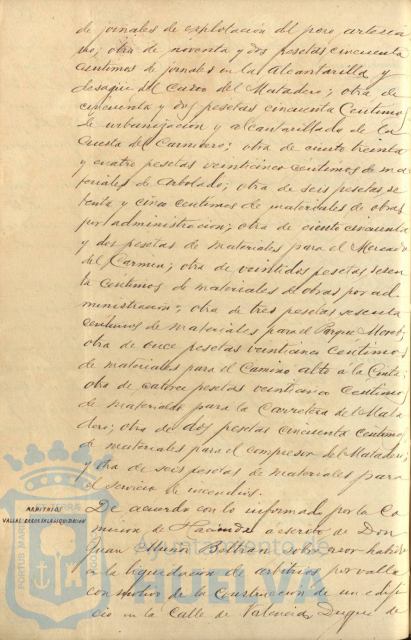 de jornales de explotación del pozo artesia
no; otra de noventa y dos pesetas cincuenta
centimos de jornales en la Alcantarilla y
desagüe del Curso del Matadero; otra de
cincuenta y dos pesetas cincuenta centimos
de urbanizacion y alcantarillado de la
Cuesta del Carnicero; otra de ciento treinta
y cuatro pesetas veinticinco centimos de ma
teriales de Arbolado; otra de seis pesetas se
tenta y cinco centimos de materiales de obras
por administracion; otra de ciento cincuenta
y dos pesetas de materiales para el Mercado
del Carmen; otra de veintidos pesetas sesen
ta centimos de materiales de obras por ad-
ministración; otra de tres pesetas sesenta
centimos de materiales para el Parque Moret;
otra de once pesetas veinticinco centimos
de materiales para el Camino alto a la Cinta;
otra de catorce pesetas veinticinco centimos
de materiales para la Carretera del Mata
dero; otra de dos pesetas cincuenta centimos
de materiales para el compresor del Matadero;
y otra de seis pesetas de materiales para
el servicio de incendios.
ARBITRIOS
De acuerdo con lo informado por la Co
mision de Hacienda acerca de Don
Juan Muñoz Beltran sobre error habido
en la liquidacion de arbitrios por valla
con motivo de la construccion de un edifi
cio en la Calle de Valencia, Duque de
PORTUS MARIS
ayuntamiento de
HUELVA